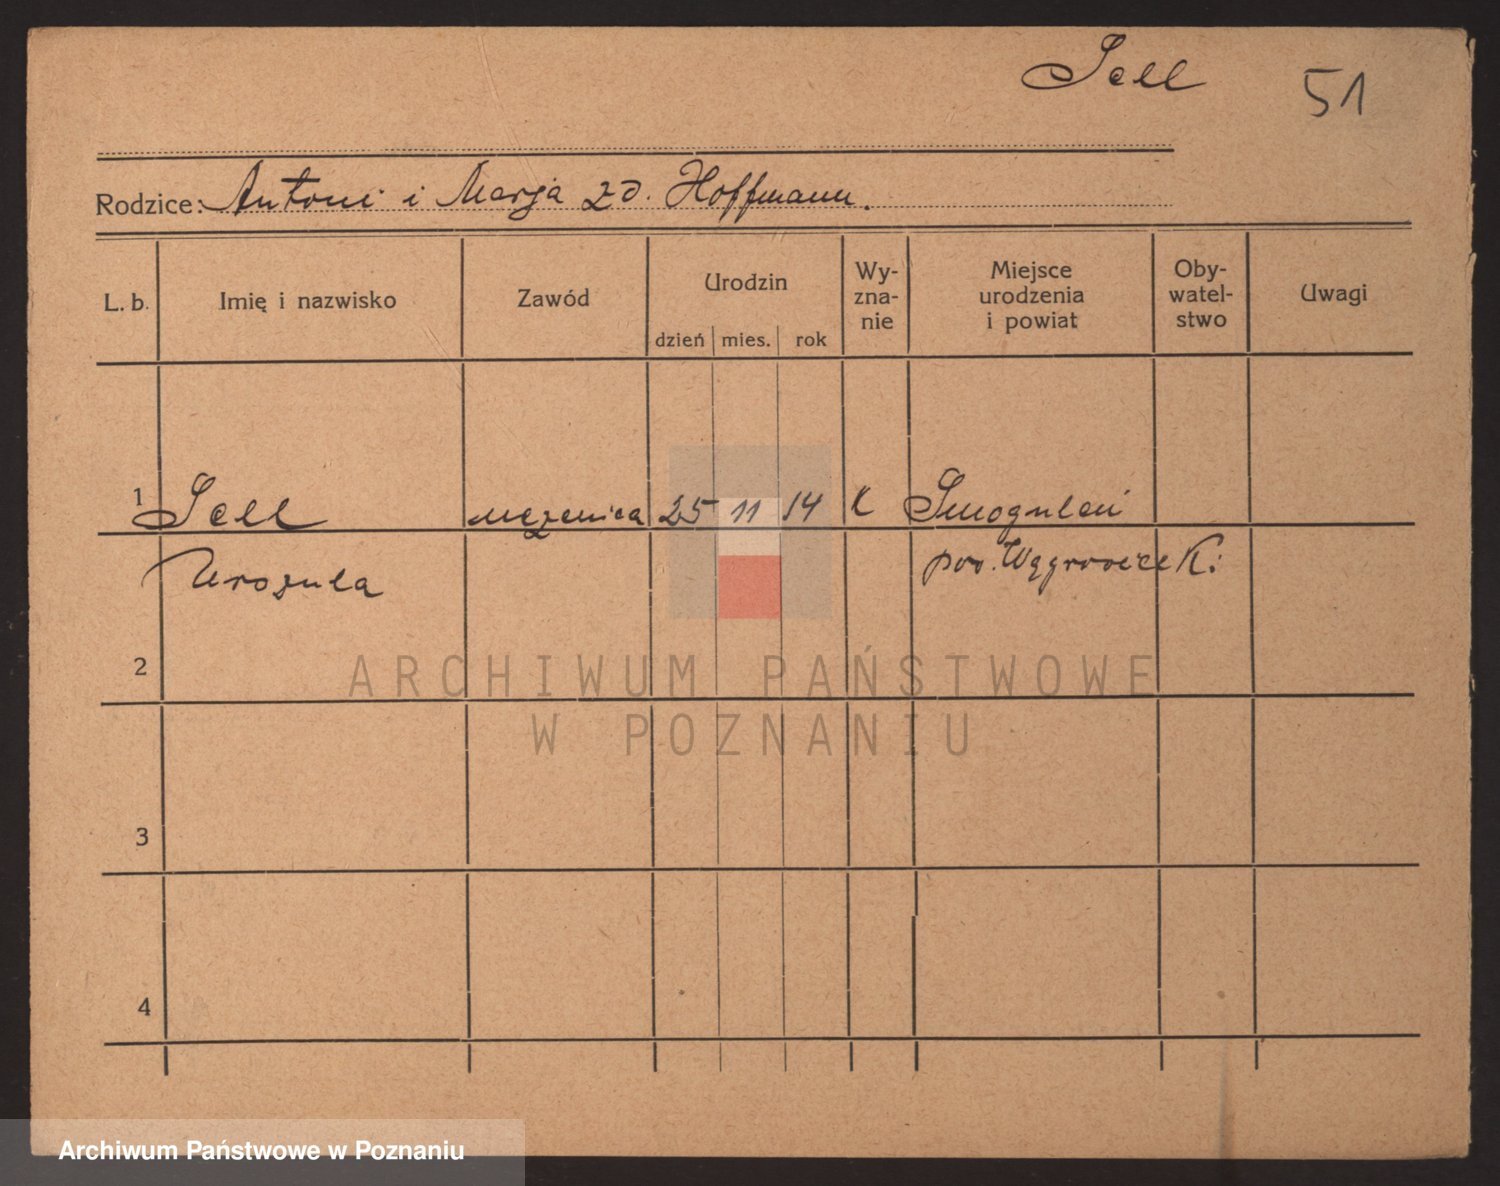 Sell 51
Rodzice: Antoni i Marja zd. Hoffmann.
L. b. Imię i nazwisko Zawód Urodzin dzień mies. rok Wy-zna-nie Miejsce urodzenia i powiat Oby-watel-stwo Uwagi
1 Sell uczenica 25 11 14 k Smoguleń
Urszula pow. Wągrowiecki:
2
ARCHIWUM PAŃSTWOWE
W POZNANIU
3
4
Archiwum Państwowe w Poznaniu